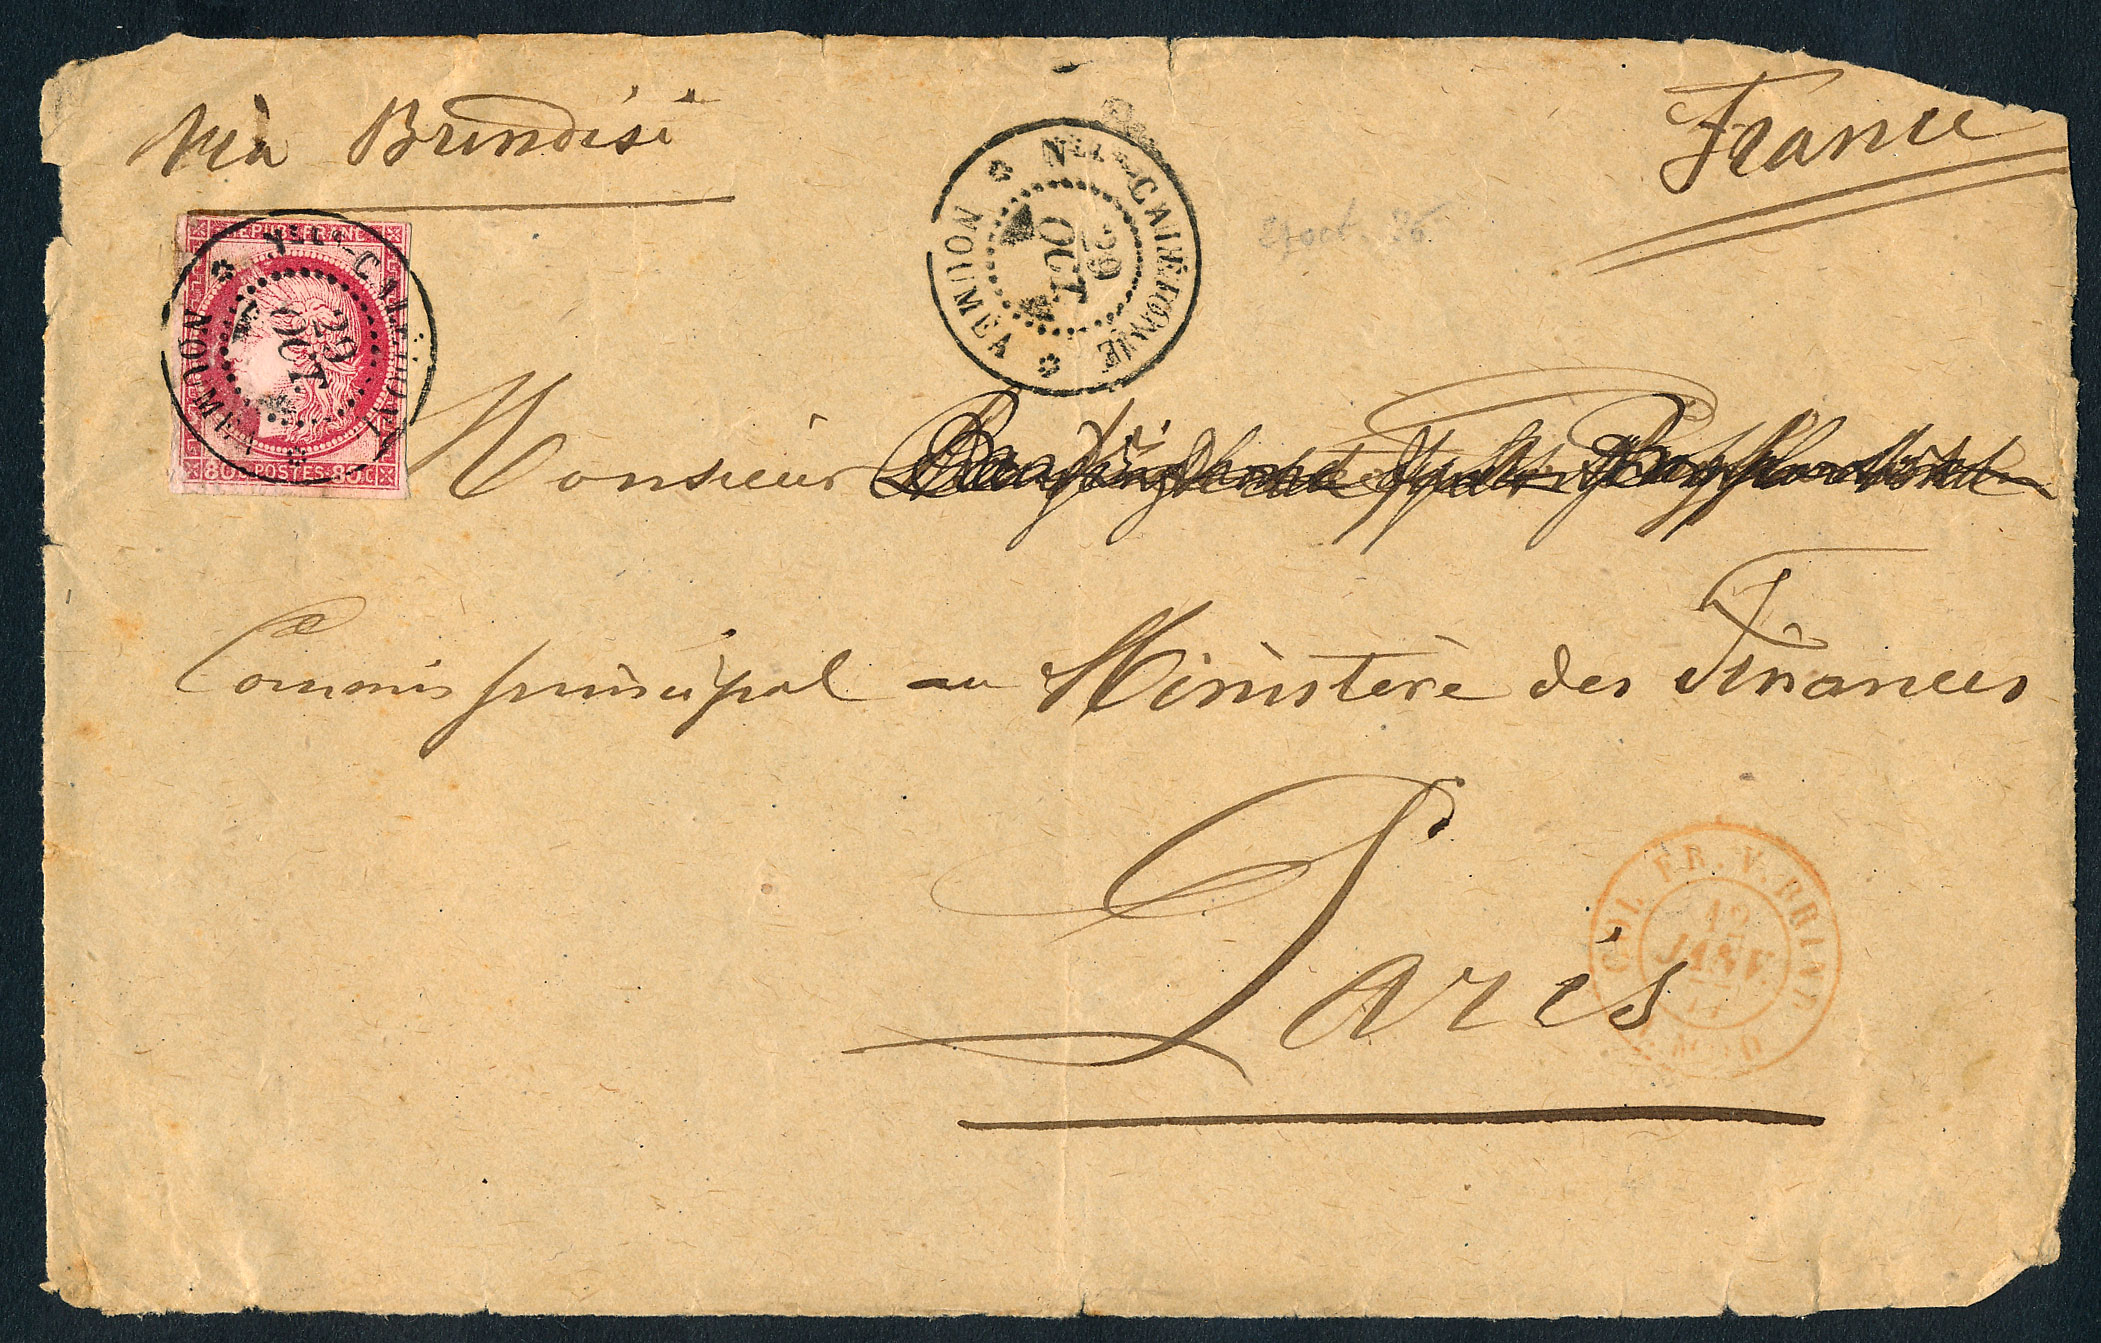 Via Brindisi
France
REPUB FRANC
80c POSTES 80c
Nlle-CALÉDONIE
29
OCT.
NOUMÉA
Nlle-CALÉDONIE
29
OCT.
NOUMÉA
oct. 76
Monsieur
Commis principal au Ministère des Finances
Paris
COL. FR. V. BRIND
12
JANV.